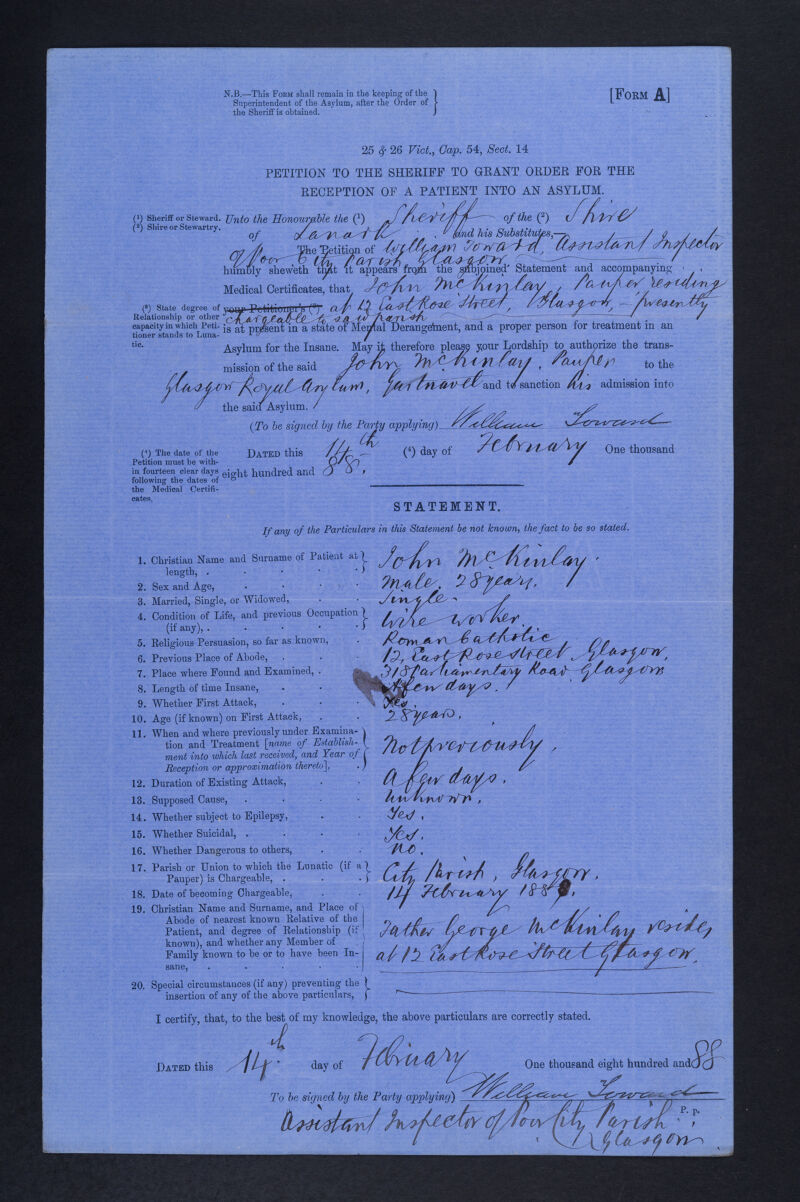 N.B.—This Form shall remain in the keeping of the
Superintendent of the Asylum, after the Order of
the Sheriff is obtained.
[Form A]
25 & 26 Vict., Cap. 54, Sect. 14
PETITION TO THE SHERIFF TO GRANT ORDER FOR THE
RECEPTION OF A PATIENT INTO AN ASYLUM.
(1) Sheriff or Steward.
(2) Shire or Stewartry.
Unto the Honourable the (1) Sheriff of the (2) Shire
of Lanark and his Substitutes,
The Petition of William Toward, Assistant Inspector
of Poor City Parish, Glasgow
humbly sheweth that it appears from the subjoined Statement and accompanying
Medical Certificates, that John McKinlay, Pauper residing
(3) State degree of
Relationship or other
capacity in which Peti-
tioner stands to Luna-
tic.
your Petitioner's (3) at 12 East Rose Street, Glasgow, – presently
chargeable to said parish
is at present in a state of Mental Derangement, and a proper person for treatment in an
Asylum for the Insane. May it therefore please your Lordship to authorize the trans-
mission of the said John McKinlay, Pauper to the
Glasgow Royal Asylum, Gartnavel and to sanction his admission into
the said Asylum.
(To be signed by the Party applying) William Toward
(4) The date of the
Petition must be with-
in fourteen clear days
following the dates of
the Medical Certifi-
cates.
Dated this 14th (4) day of February One thousand
eight hundred and 88.
STATEMENT.
If any of the Particulars in this Statement be not known, the fact to be so stated.
1. Christian Name and Surname of Patient at
length, . John McKinlay.
2. Sex and Age, Male. 28 years.
3. Married, Single, or Widowed, Single.
4. Condition of Life, and previous Occupation
(if any), . Wire worker
5. Religious Persuasion, so far as known, Roman Catholic
6. Previous Place of Abode, 12, East Rose Street, Glasgow,
7. Place where Found and Examined, 318 Parliamentary Road Glasgow
8. Length of time Insane, A few days.
9. Whether First Attack, Yes.
10. Age (if known) on First Attack, 28 years.
11. When and where previously under Examina-
tion and Treatment [name of Establish-
ment into which last received, and Year of
Reception or approximation thereto], Not previously.
12. Duration of Existing Attack, A few days.
13. Supposed Cause, Unknown.
14. Whether subject to Epilepsy, Yes.
15. Whether Suicidal, Yes.
16. Whether Dangerous to others, No.
17. Parish or Union to which the Lunatic (if a
Pauper) is Chargeable, City Parish, Glasgow.
18. Date of becoming Chargeable, 14 February 188
19. Christian Name and Surname, and Place of
Abode of nearest known Relative of the
Patient, and degree of Relationship (if
known), and whether any Member of
Family known to be or to have been In-
sane,
Father George McKinlay resides
at 12 East Rose Street Glasgow.
20. Special circumstances (if any) preventing the
insertion of any of the above particulars,
I certify, that, to the best of my knowledge, the above particulars are correctly stated.
Dated this 14th. day of February One thousand eight hundred and 88
To be signed by the Party applying) William Toward
P. p.
Assistant Inspector of Poor City Parish
Glasgow.